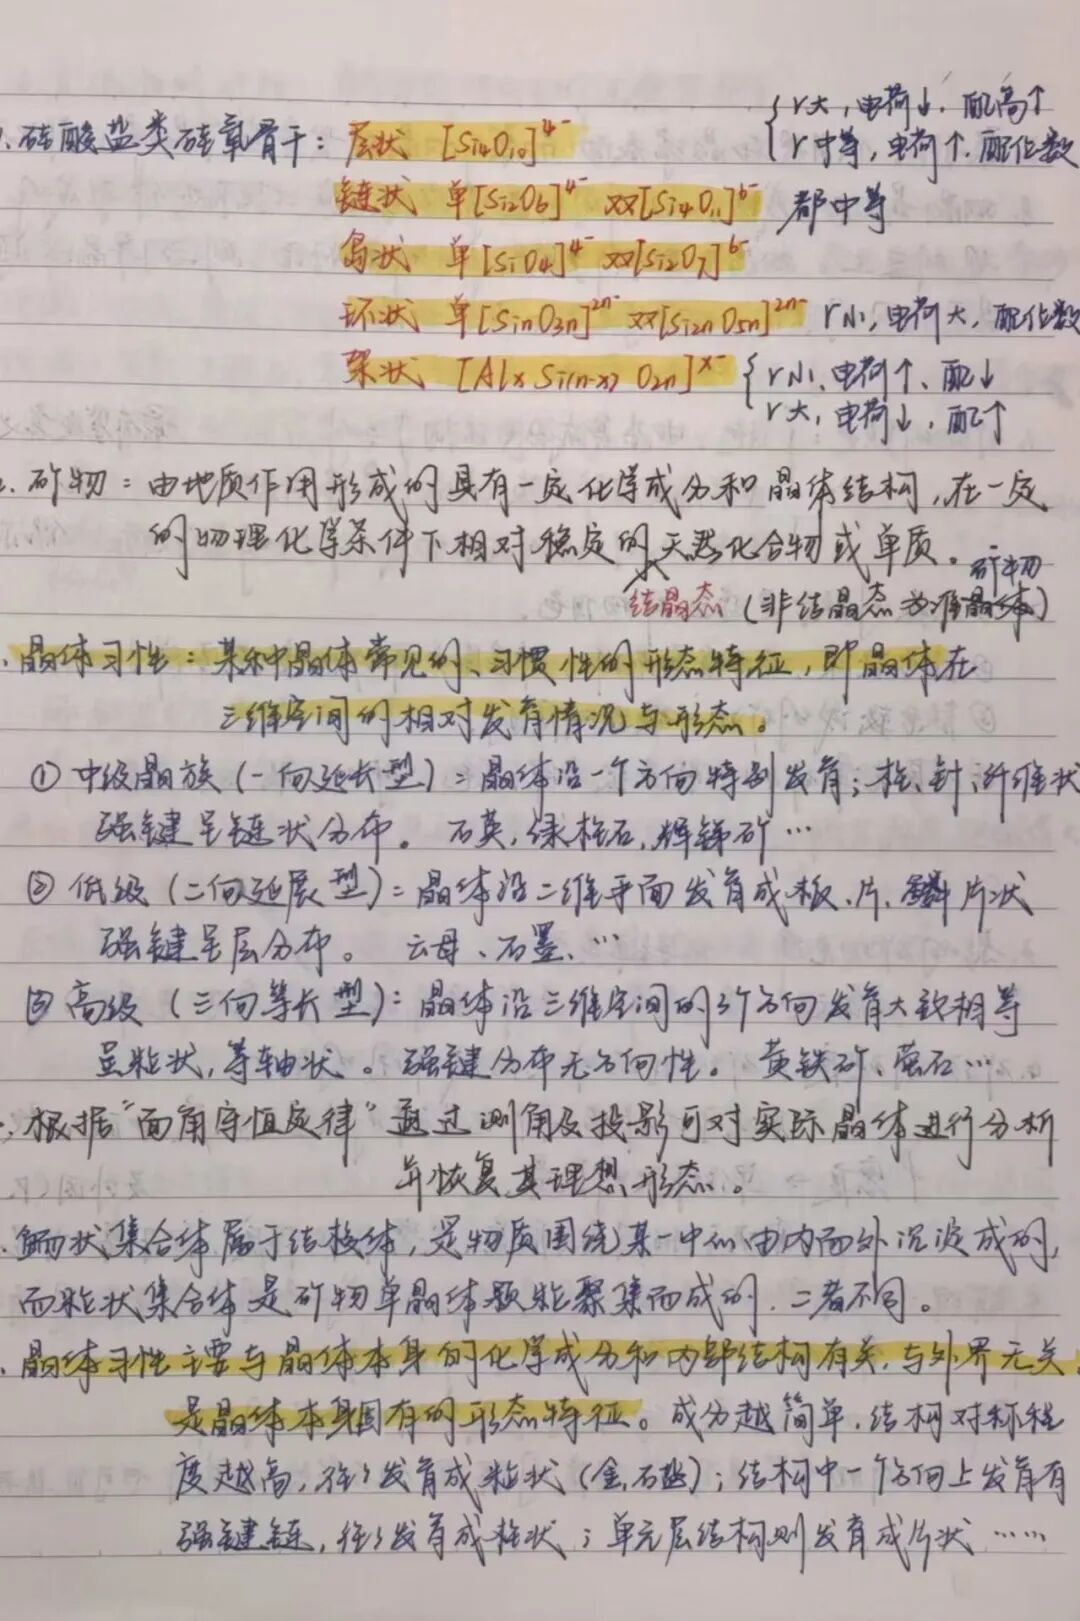 {r大，电荷↓，配高↑
1. 硅酸盐类硅氧骨干：层状 [Si4O10]4- r中等，电荷↑，配位数
链状 单[Si2O6]4- 双[Si4O11]6- 都中等
岛状 单[SiO4]4- 双[Si2O7]6-
环状 单[SinO3n]2n- 双[Si2nO5n]2n- r小，电荷大，配位数
架状 [AlxSi(n-x)O2n]x- {r小、电荷↑、配↓
r大，电荷↓，配↑
2. 矿物：由地质作用形成的具有一定化学成分和晶体结构，在一定
的物理化学条件下相对稳定的天然化合物或单质。
结晶态（非结晶态为准矿物晶体）
. 晶体习性：某种晶体常见的、习惯性的形态特征，即晶体在
三维空间的相对发育情况与形态。
① 中级晶族（一向延长型）：晶体沿一个方向特别发育；柱、针、纤维状
强键呈链状分布。 石英，绿柱石，辉锑矿…
② 低级（二向延展型）：晶体沿二维平面发育成板、片、鳞片状
强键呈层分布。 云母、石墨、…
③ 高级（三向等长型）：晶体沿三维空间的3个方向发育大致相等
呈粒状，等轴状。强键分布无方向性。 黄铁矿、萤石…
. 根据“面角守恒定律”通过测角及投影可对实际晶体进行分析
并恢复其理想形态。
. 鲕状集合体属于结核体，是物质围绕某一中心由内而外沉淀成的，
而粒状集合体是矿物单晶体颗粒聚集而成的，二者不同。
. 晶体习性主要与晶体本身的化学成分和内部结构有关，与外界无关，
是晶体本身固有的形态特征。成分越简单，结构对称程
度越高，往往发育成粒状（金，石盐）；结构中一个方向上发育有
强键链，往往发育成柱状；单元层结构则发育成片状……